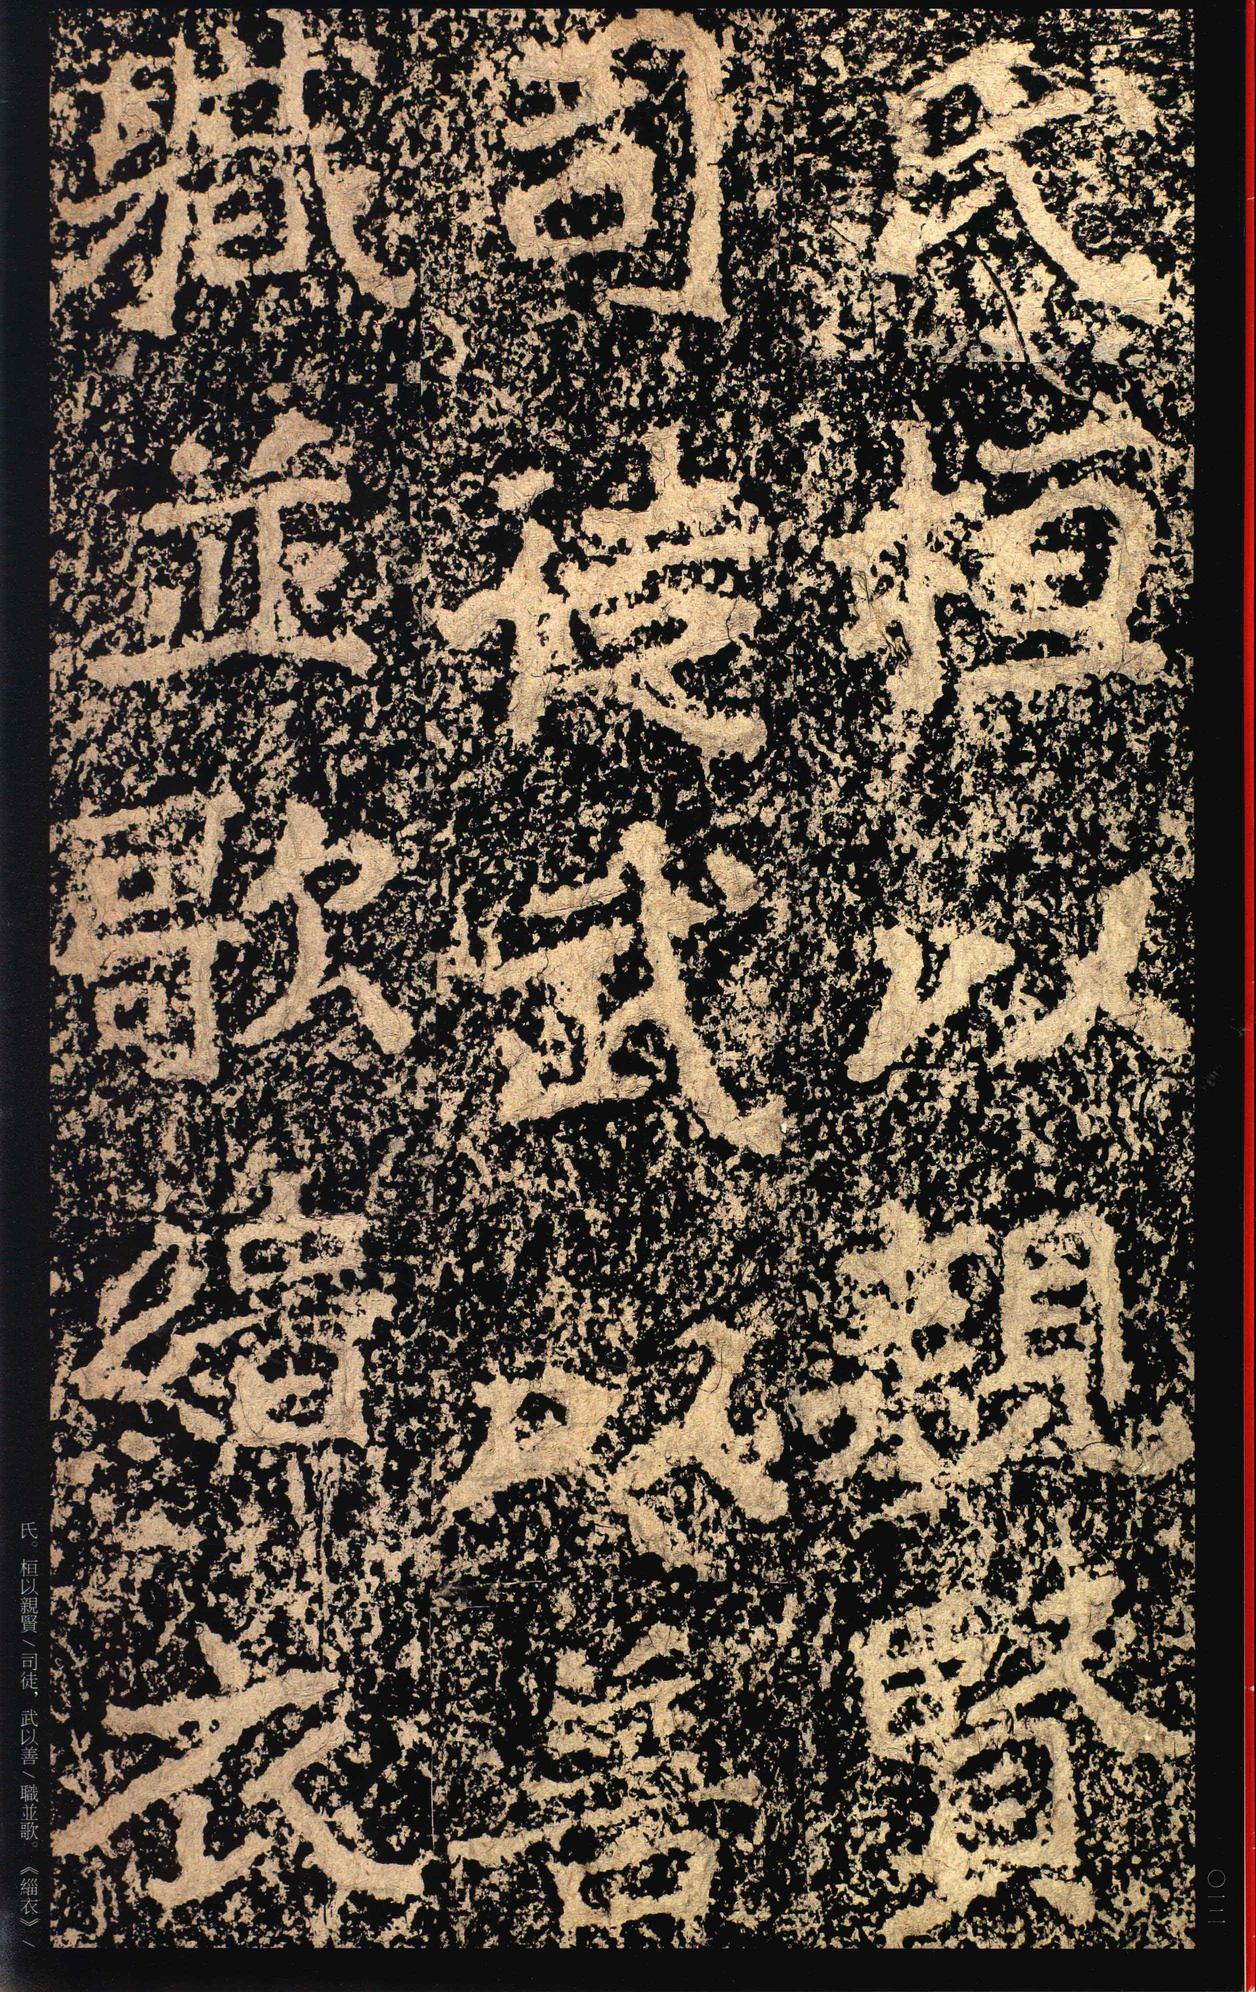 氏桓以親賢
司徒武以善
職並歌緇衣
氏。桓以親賢／司徒，武以善／職並歌。《緇衣》／
〇一二